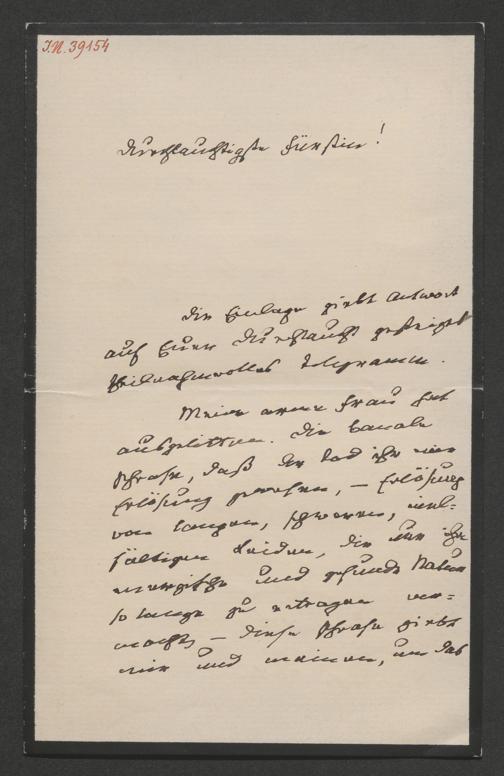 I.N. 39154
Durchlauchtigste Fürstin!
Die Einlage giebt Antwort
auf Eurer Durchlaucht gestriges
theilnahmvolles Telegramm.
Meine arme Frau hat
ausgelitten. Die banale
Phrase, daß der Tod ihr eine
Erlösung gewesen, – Erlösung
von langen, schweren, viel-
fältigen Leiden, die nur ihre
energische und gesunde Natur
so lange zu ertragen ver-
mochte – diese Phrase giebt
mir und meinen, um das